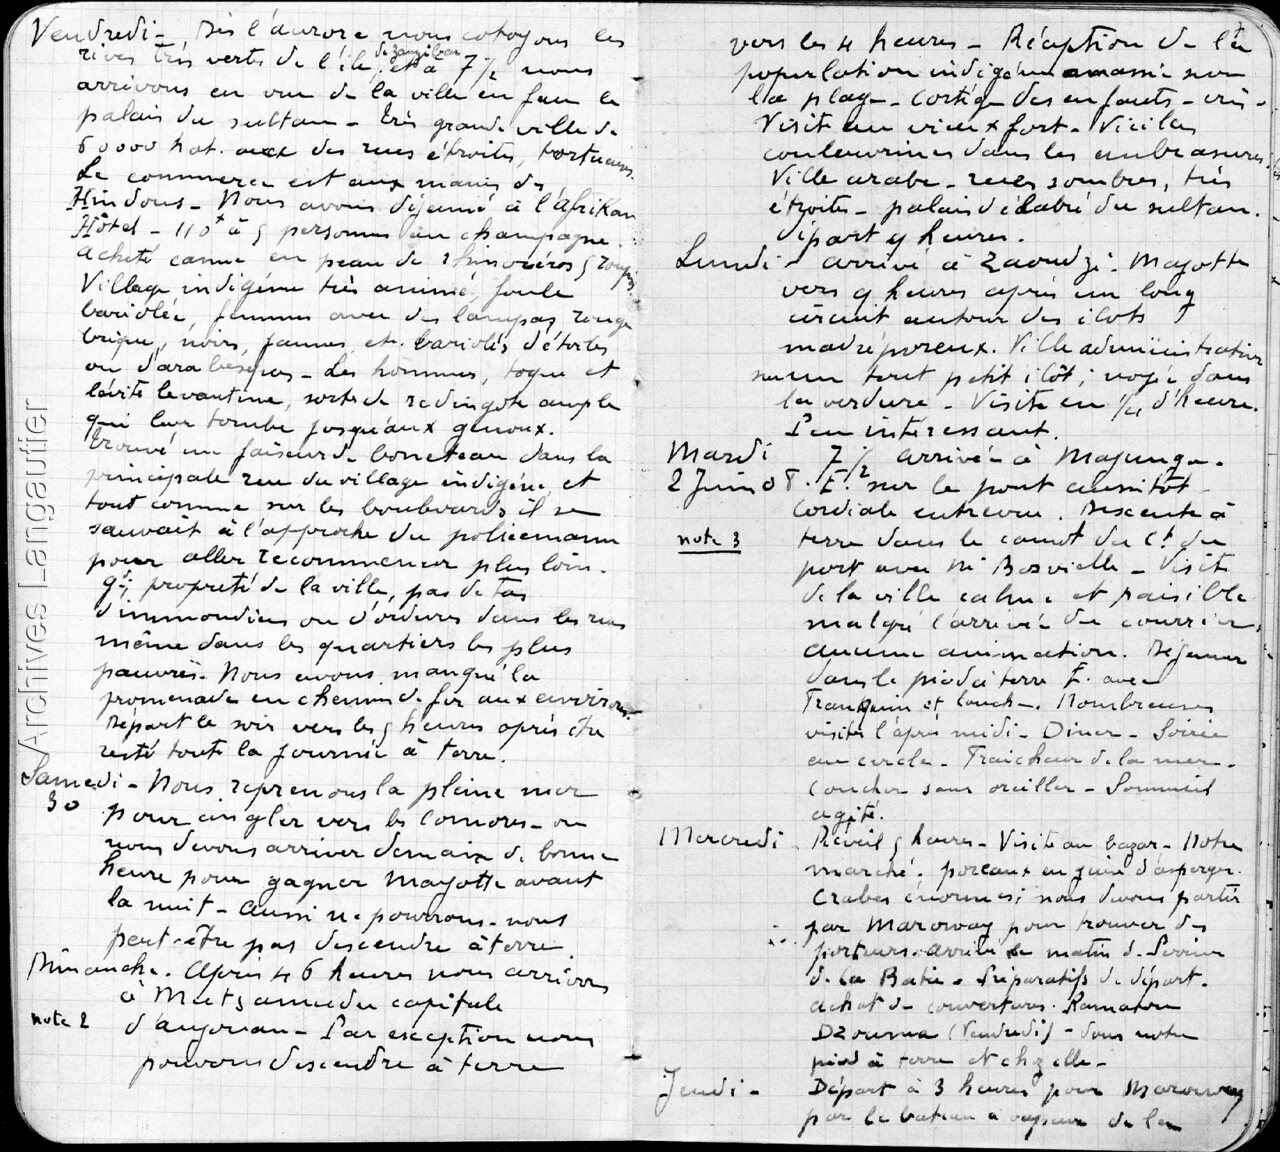 Vendredi - Dès l'aurore nous cotoyons les
rives très vertes de l'île de Zanzibar et à 7 1/2 nous
arrivons en vue de la ville en face le
palais du sultan - Très grande ville de
60000 hab. avec des rues étroites, tortueuses.
Le commerce est aux mains des
Hindous - Nous avons déjeuné à l'Afrikan
Hôtel - 110 à 5 personnes au champagne.
acheté canne en peau de rhinocéros 5 roupies.
Village indigène très animé, foule
bariolée, femmes avec des lampas rouge
brique, noirs, jaunes, etc. bariolés d'étoiles
ou d'arabesques - Les hommes, toque et
lévite levantine, sorte de redingote ample
qui leur tombe jusqu'aux genoux.
trouvé un faiseur de bonneteau dans la
principale rue du village indigène, et
tout comme sur les boulevards il se
sauvait à l'approche du policemann
pour aller recommencer plus loin.
gde propreté de la ville, pas de tas
d'immondices ou d'ordures dans les rues
même dans les quartiers les plus
pauvres. Nous avons manqué la
promenade en chemin de fer aux environs.
Départ le soir vers les 5 heures après être
resté toute la journée à terre.
Samedi - Nous reprenons la pleine mer
30
pour cingler vers les Comores - où
nous devons arriver demain de bonne
heure pour gagner Mayotte avant
la nuit - aussi ne pourrons-nous
peut-être pas descendre à terre
Dimanche. Après 46 heures nous arrivons
à Metsamudu capitale
note 2
d'anjouan - Par exception nous
pouvons descendre à terre
vers les 4 heures - Réception de la
population indigène amassée sur
la plage - Cortège des enfants - cris -
Visite au vieux fort - Vieilles
couleuvrines dans les embrasures.
Ville arabe - rues sombres, très
étroites - palais délabré du sultan.
départ 9 heures.
Lundi - arrivé à Zaoudzi - Mayotte
vers 9 heures après un long
circuit autour des ilots
madréporeux. Ville administrative
sur un tout petit ilôt; noyée dans
la verdure - Visite en 1/4 d'heure.
Peu intéressant.
Mardi 7 1/2 arrivée à Majunga.
2 Juin 08. E. sur le pont aussitôt
Cordiale entrevue. Descente à
note 3
terre dans le canot du Ct du
port avec Mr - Visite
de la ville calme et paisible
malgré l'arrivée du courrier,
aucune animation. Déjeuner
dans le pied à terre E. avec
et Louch-. Nombreuses
visites l'après midi - Diner - Soirée
au cercle - Fraicheur de la mer -
Coucher sans oreiller - Sommeil
agité.
Mercredi - Réveil 5 heures - Visite au bazar - Notre
marché: poreaux en guise d'asperges.
Crabes énormes; nous devons partir
par Marovoay pour trouver des
porteurs. arrivée ce matin de
de la Batie - Préparatifs de départ.
achat de couvertures. Ramatou
Dzouma (Vendredi) - dans notre
pied à terre et chez elle -
Jeudi - Départ à 3 heures pour Marovoay
par le bateau à vapeur de la
Archives Langautier